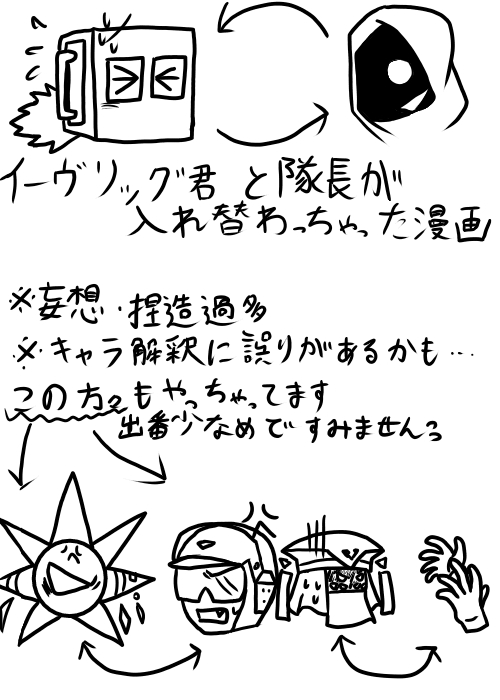 イーヴリッグ君と隊長が
入れ替わっちゃった漫画
※妄想・捏造過多
※キャラ解釈に誤りがあるかも…
この方々もやっちゃってます
出番少なめですみません